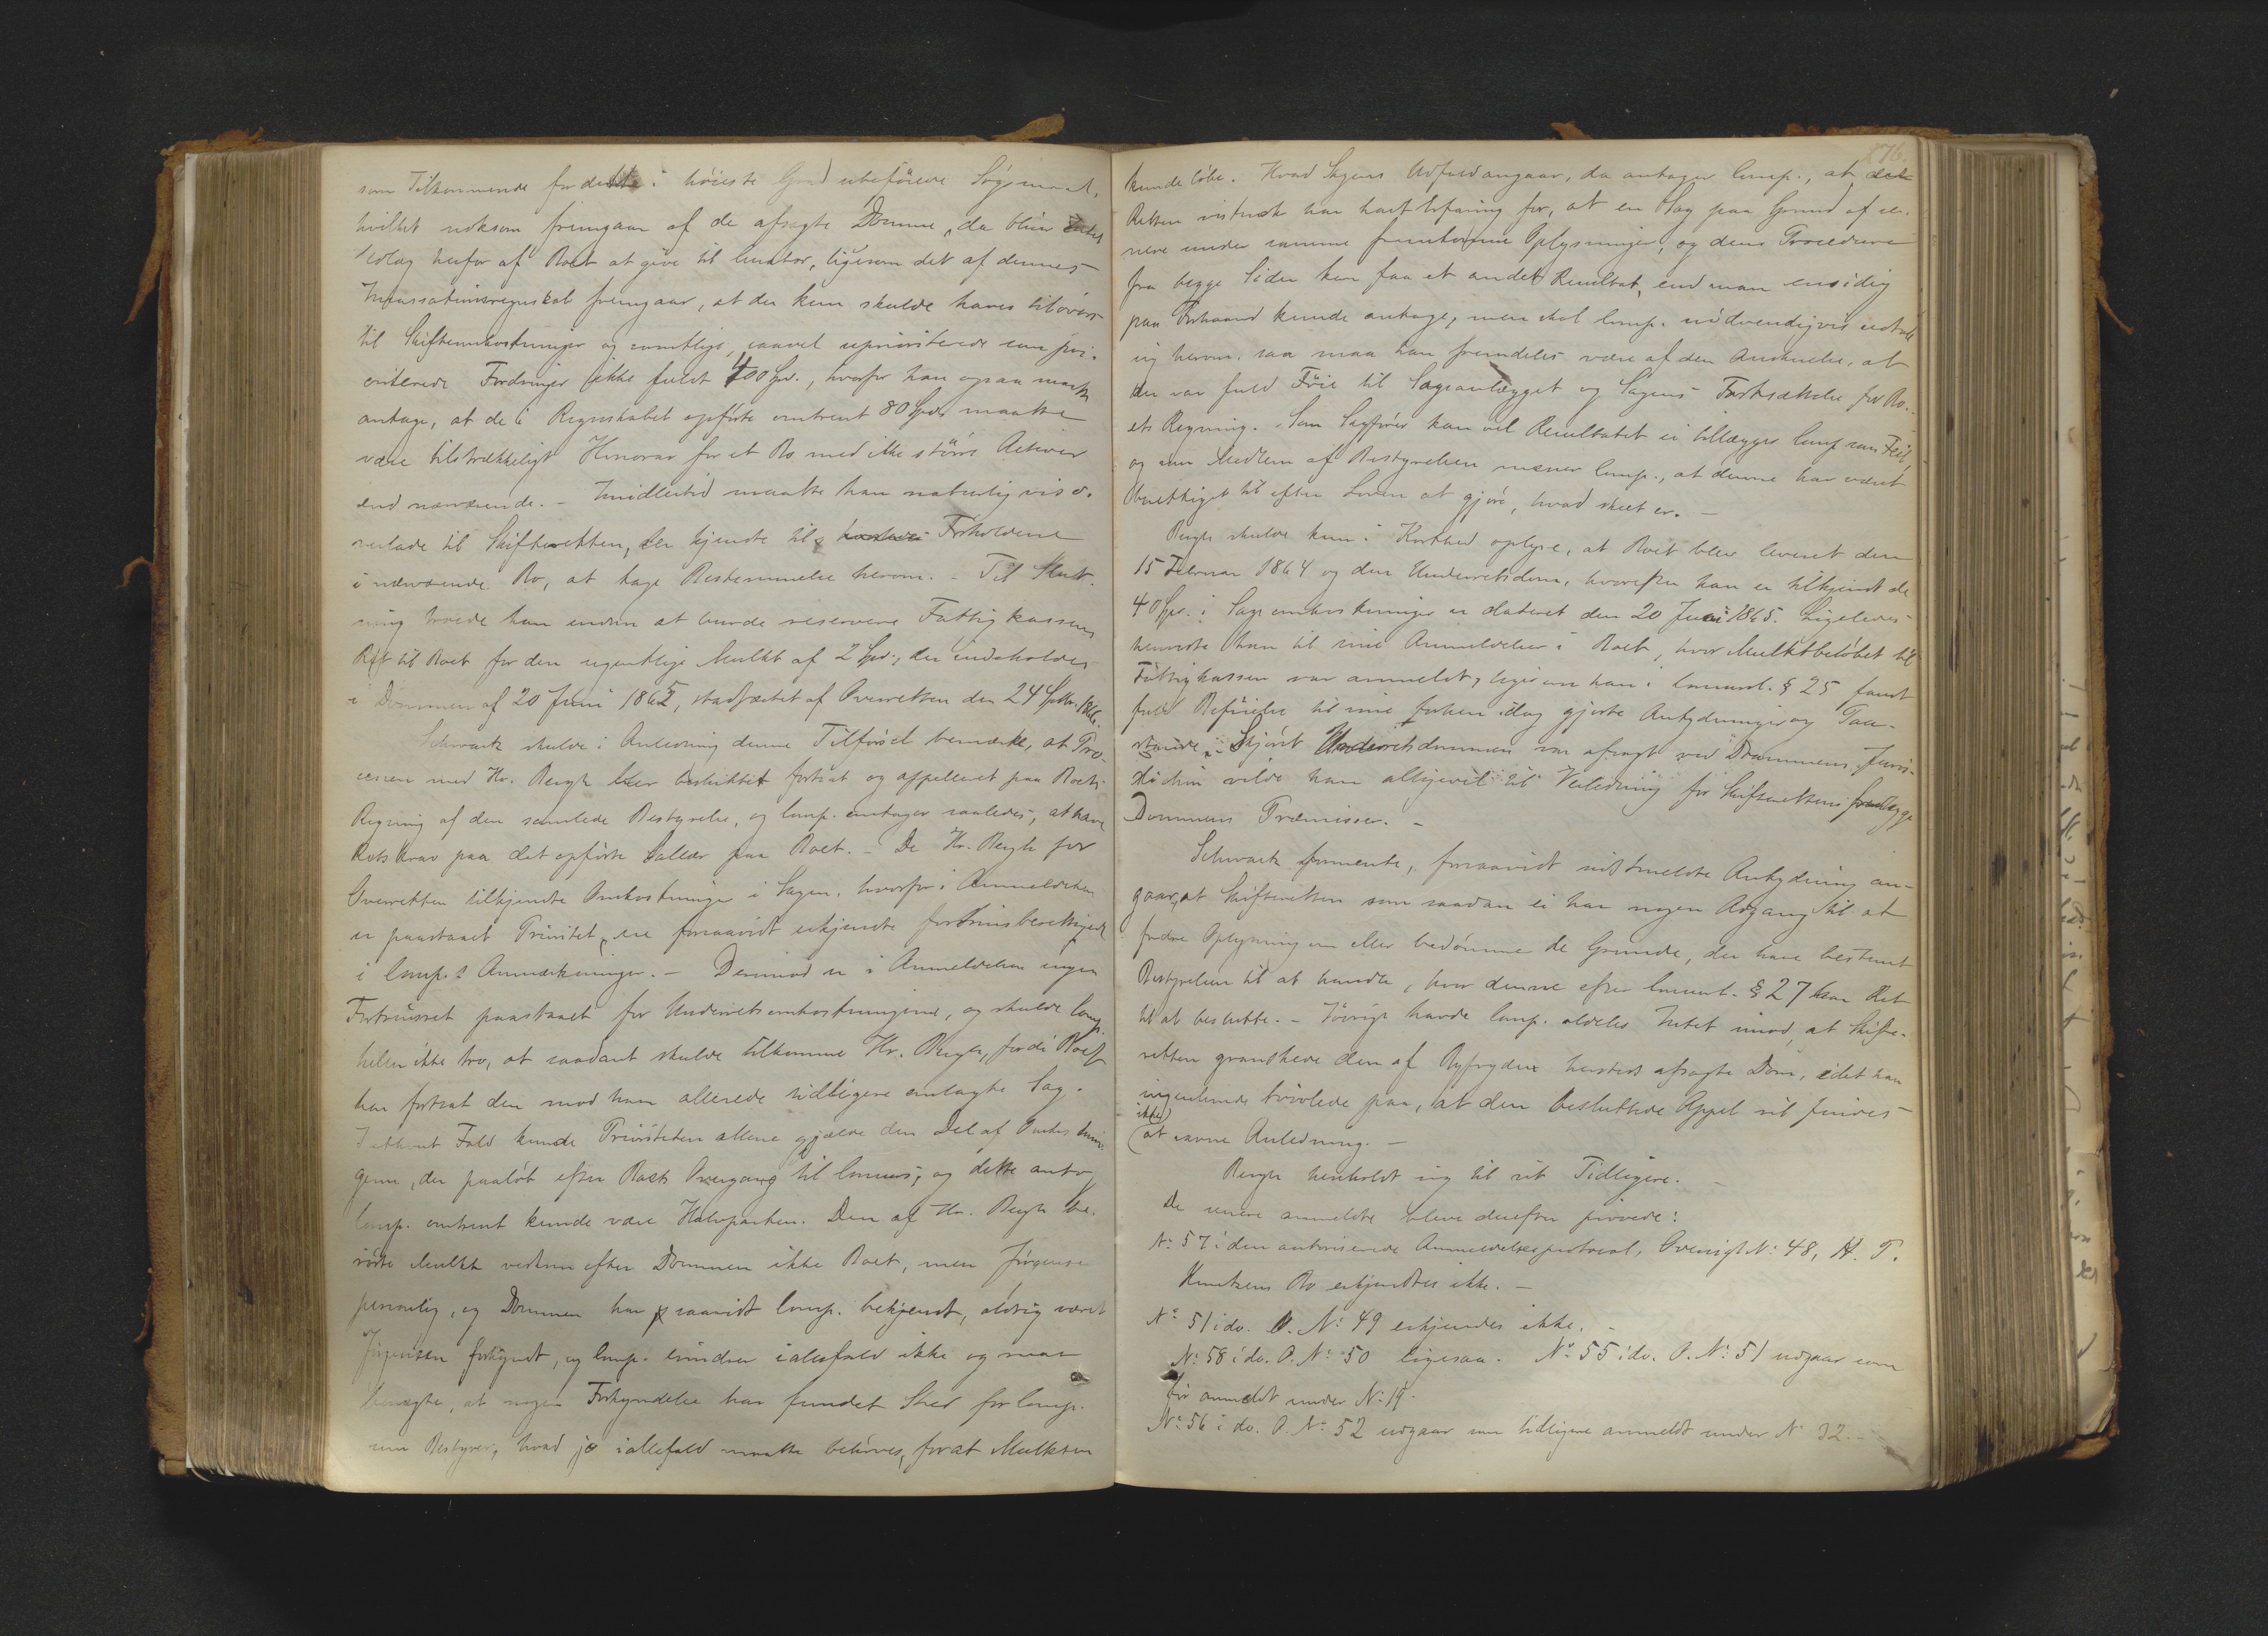 som Tilkommende for dette i høieste Grad ubeføiede Søgsmaal,
hvilket noksom fremgaar af de afsagte Domme, da bliver Intet
Udlæg herfor af Boet at give til Curator, ligesom det af dennes
Incassationsregnskab fremgaar, at der kun skulde haves tilovers
til Skifteomkostninger og samtlige, saavel upriviterede som pri-
oriterede Fordringer ikke fuldt 400 Spd., hvorfor han ogsaa maatte
antage, at de i Regnskabet opførte omtrent 80 Spd. maatte
være tilstrækkeligt Honorar for et Bo med ikke større Activer
end nærværende. - Imidlertid maatte han naturligvis o-
verlade til Skifteretten, der kjendte til Forholdene
i nærværende Bo, at tage Bestemmelse herom. - Til Slut-
ning troede han endnu at burde reservere Fattigkassens
Ret til Boet for den ugentlige Mulkt af 2 Spd., der indeholdes
i Dommen af 20 Juni 1865, stadfæstet af Overretten den 24 Septbr. 1866.
Schwartz skulde i Anledning denne Tilførsel bemærke, at Pro-
cessen med Hr. Bergh blev besluttet fortsat og appelleret paa Boets
Regning af den samlede Bestyrelse, og Comp. antager saaledes, at have
Retskrav paa det opførte Sallær paa Boet. - De Hr. Bergh for
Overretten tilkjendte Omkostninger i Sagen, hvorfor i Anmeldelsen
er paastaaet Prioritet, ere forsaavidt erkjendte fortrinsberettigede
i Comp.s Anmærkninger. - Derimod er i Anmeldelsen ingen
Fortrinsret paastaaet for Underretsomkostningerne, og skulde Comp.
heller ikke tro, at saadant skulde tilkomme Hr. Bergh, fordi Boet
har fortsat den mod ham allerede tidligere anlagte Sag.
I ethvert Fald kunde Prioriteten allene gjælde den Del af Omkostnin-
gerne, der paaløb efter Boets Overgang til Concurs, og dette antog
Comp. omtrent kunde være Halvparten. Den af Hr. Bergh be-
rørte Mulkt vedkom efter Dommen ikke Boet, men Jørgensen
personlig, og Dommen har saavidt Comp. bekjendt, aldrig været
Jørgensen forkyndt, og Comp. erindrer ialfald ikke og maa
benægte, at nogen Forkyndelse har fundet Sted for Comp.
som Bestyrer, hvad jo iallefald maatte behøves, for at Mulkten
176.
kunde løbe. Hvad Sagens Udfald angaar, da antager Comp., at
Retten vistnok har havt Erfaring for, at en Sag paa Grund af se-
nere under samme fremkomne Oplysninger, og dens Procedure
fra begge Sider kan faa et andet Resultat, end man ensidig
paa Forhaand kunde antage, men skal Comp. nødvendigvis udtale
sig herom, saa maa han fremdeles være af den Anskuelse, at
der var fuld Føie til Sagsanlægget og Sagens Fortsættelse for Bo-
ets Regning. Som Sagfører kan vel Resultatet ei tillægges Comp. som Feil,
og som Medlem af Bestyrelsen mener Comp., at denne har været
berettiget til efter Loven at gjøre, hvad skeet er. -
Bergh skulde kun i Korthed oplyse, at Boet blev leveret den
15 Februar 1864 og den Underretsdom, hvorefter han er tilkjendt de
40 Spd. i Sagsomkostninger er dateret den 20 Juni 1865. Ligeledes
henviste han til sine Anmeldelser i Boet, hvor Mulktbeløbet til
Fattigkassen var anmeldt, ligesom han i Concursl. § 25 fandt
fuld Beføielse til sine forhen idag gjorte Antydninger og Paa-
stande. - Skjønt Underretsdommen var afsagt ved Drammens Juris-
diction vilde han alligevel til Veiledning for Skifteretten fremlægge
Dommens Præmisser. -
Schwartz formente, forsaavidt sidstmeldte Antydning an-
gaar, at Skifteretten som saadan ei har nogen Adgang til at
fordre Oplysning om eller bedømme de Grunde, der have bestemt
Bestyrelsen til at handle, hvor denne efter Concursl. § 27 har Ret
til at beslutte. - Iøvrigt havde Comp. aldeles Intet imod, at Skifte-
retten granskede den af Byfogden hersteds afsagte Dom, idet han
ingenlunde tvivlede paa, at den besluttede Appel vil findes
ikke
at savne Anledning. -
Bergh henholdt sig til sit Tidligere. -
De senere anmeldte bleve derefter prøvede:
No 57 i den autoriserede Anmeldelsesprotocol, Oversigt No: 48, H. P.
Knutzens Bo erkjendtes ikke. -
No 51 i do. O. No: 49 erkjendes ikke. -
No: 58 i do. O. No: 50 ligesaa. No: 55 i do. O. No: 51 udgaar som
før anmeldt under No: 19.
No: 56 i do. O. No: 52 udgaar som tidligere anmeldt under No 32. -